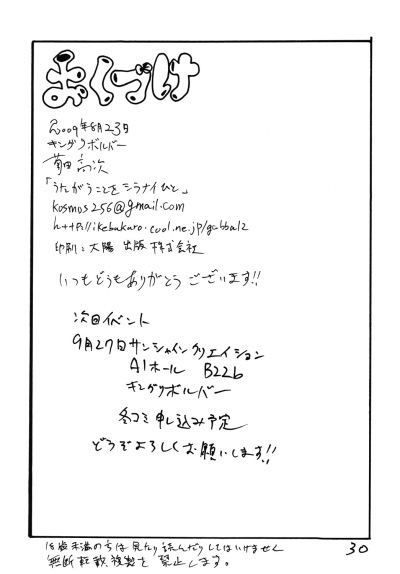 おくづけ
2009年8月23日
キングリボルバー
菊田高次
「うたがうことをシラナイひと」
kosmos256@gmail.com
http://ikebukuro.cool.ne.jp/gabbalz
印刷：大陽出版株式会社
いつもどうもありがとうございます!!
次回イベント
9月27日サンシャインクリエイション
A1ホール B22b
キングリボルバー
冬コミ申し込み予定
どうぞよろしくお願いします!!
18歳未満の方は見たり読んだりしてはいけません
無断転載複製を禁止します。
30